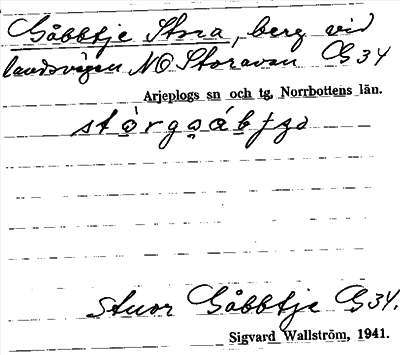 Gåbbtje Stora, berg vid
landsvägen NO Storavan G 34
Arjeplogs sn och tg, Norrbottens län.
Stuor Gåbbtje G 34.
Sigvard Wallström, 1941.